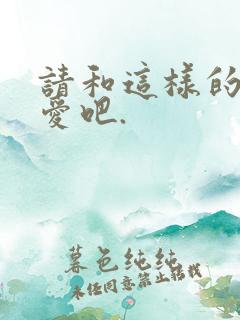 請和這樣的
愛吧.
暮色纯纯
未经同意禁止转载